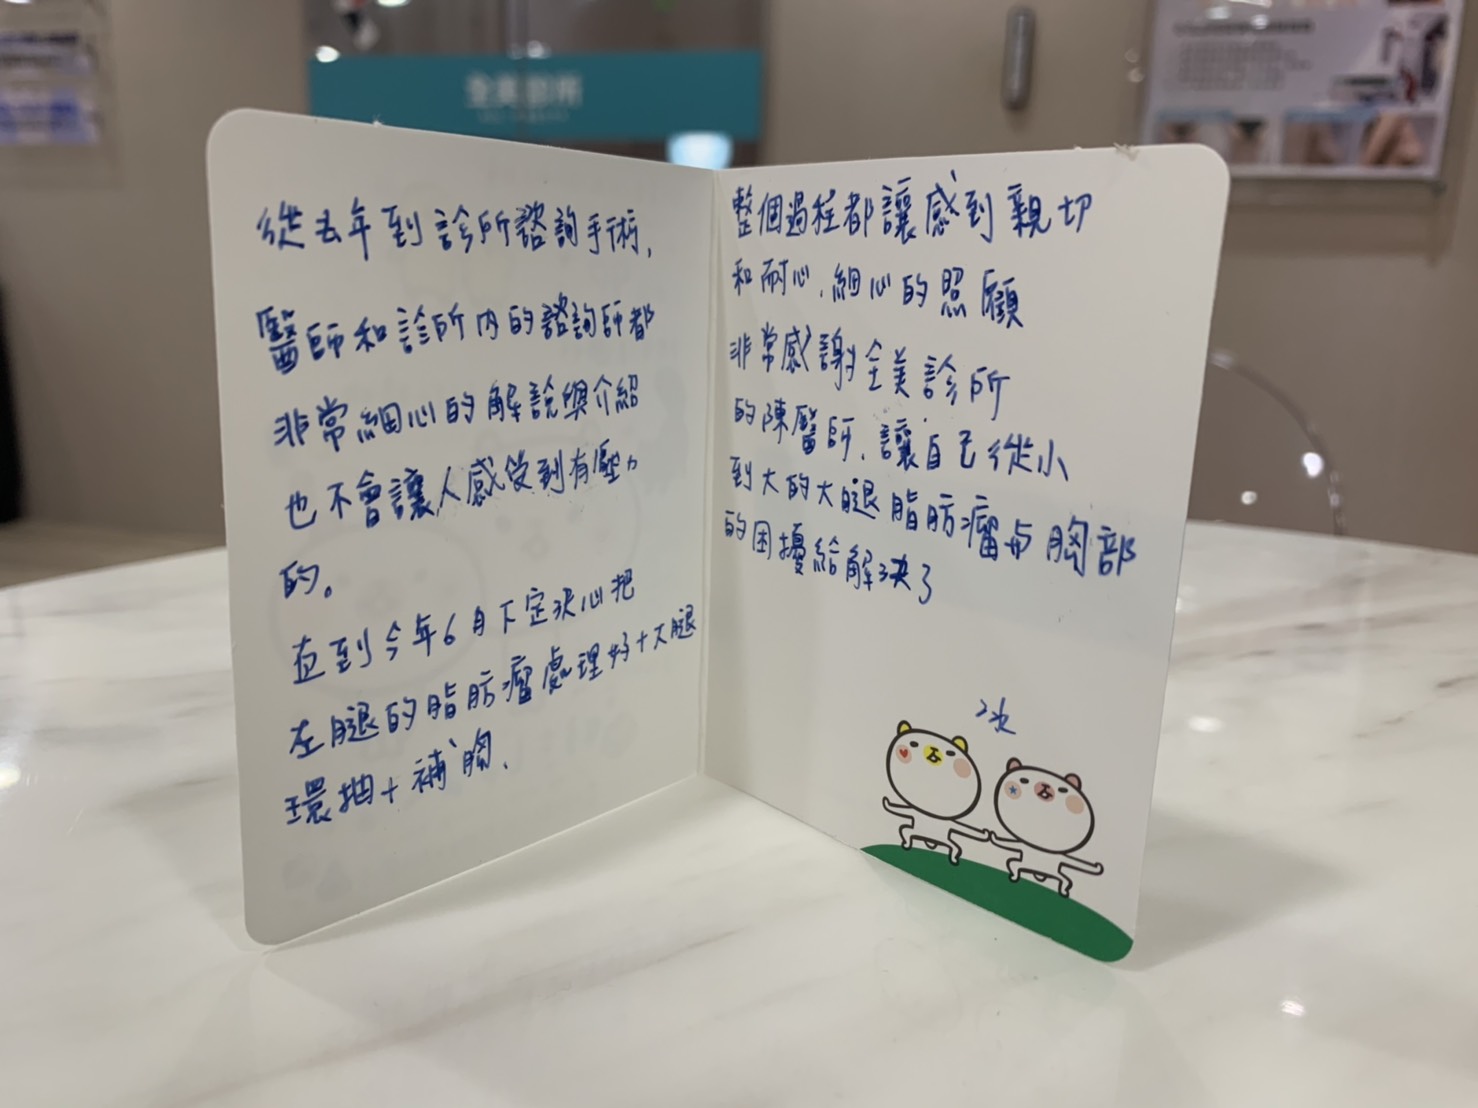 全美診所
從去年到診所諮詢手術,
醫師和診所內的諮詢師都
非常細心的解說與介紹
也不會讓人感受到有壓力
的。
直到今年6月下定決心把
左腿的脂肪瘤處理好+大腿
環抽+補胸.
整個過程都讓感到親切
和耐心.細心的照顧
非常感謝全美診所
的陳醫師.讓自己從小
到大的大腿脂肪瘤与胸部
的困擾給解決了
冰